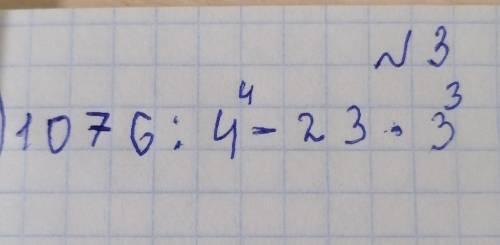 № 3
1076 : 4⁴ - 23 · 3³